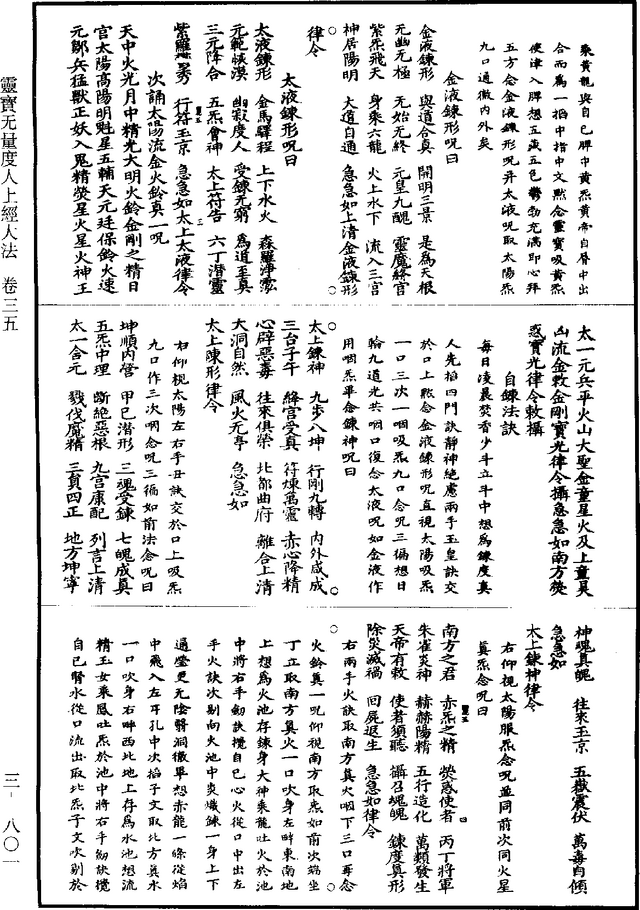 靈寶无量度人上經大法　卷三五
三-八〇一
聚黃龍與自己脾中黃炁黃帝自唇中出
合而為一掐中指中文默念靈寶吸黃炁
使津入脾想五藏五色鬱勃充滿即心拜
五方念金液鍊形呪并太液呪取太陽炁
九口通徹內外矣
金液鍊形呪曰
金液鍊形　與道合真　開明三景　是為天根
元幽元極　无始无終　元皇九醜　靈魔絳官
紫炁飛天　身乘六龍　火上水下　流入三宮
神居陽明　大道自通　急急如上清金液鍊形
律令
太液鍊形呪曰
太液鍊形　金馬驛程　上下水火　森羅淨雲
元範恢漠　幽寂度人　受鍊无窮　為道至真
三元降合　五炁會神　太上符告　六丁潛靈
紫羅秀　行符玉京　急急如太上太液律令
次誦太陽流金火鈴真一呪
天中火光月中精光大明火鈴金剛之精日
官太陽高陽明魁星五輔天元廷保鈴火速
元鄒兵猛獸正妖入鬼精熒星火星火神王
太一元兵平火山大聖金童星火及上童昊
凶流金敕金剛寶光律令攝急急如南方熒
惑寶光律令敕攝
自鍊法訣
每日凌晨焚香少斗立斗中想為鍊度真
人先掐四門訣靜神絶慮兩手玉皇訣交
於口上默念金液鍊形呪直視太陽吸炁
一口三次一咽吸炁九口念呪三徧想日
輪九道光共咽口復念太液呪如金液作
用咽炁畢念鍊神呪曰
太上鍊神　九步八坤　行剛九轉　內外咸成
三台子午　絳宮受真　符煉萬靈　赤心降精
心辟惡毒　往來俱榮　北鄷曲府　離合上清
大洞自然　風火无亭　急急如
太上陳形律令
右仰視太陽左右手丑訣交於口上吸炁
九口作三次咽念呪三徧如前法念呪曰
坤順內營　甲巳潛形　三魂受鍊　七魄成真
五炁中理　斷絶惡根　九宮康配　列言上清
太一含元　戮伐魔精　三頁四正　地方坤寧
神魂真魄　往來玉京　五嶽震伏　萬毒自傾
急急如
太上鍊神律令
右仰視太陽服炁念呪並同前次同火星
真炁念呪曰
南方之君　赤炁之精　熒惑使者　丙丁將軍
朱雀炎神　赫赫陽精　五行造化　萬類發生
天帝有敕　使者須聽　攝召魂魄　鍊度真形
除災滅禍　回屍返生　急急如律令
右兩手火訣取南方真火咽下三口再念
火鈴真一呪仰視南方取炁如前次端坐
丁立取南方真火一口吹身左畔東南地
上想為火池存鍊身大神乘龍吐火於池
中將右手劒訣攪自己心火從口中出左
手火訣次剔向火池中炎熾鍊一身上下
通瑩更无陰翳洞徹畢想赤龍一條從焰
中飛入左耳孔中次掐子文取北方真水
一口吹身右畔西北地上存為水池想流
精玉女乘鳳吐炁於池中將右手劒訣攪
自己腎水從口流出取北炁子文吹剔於